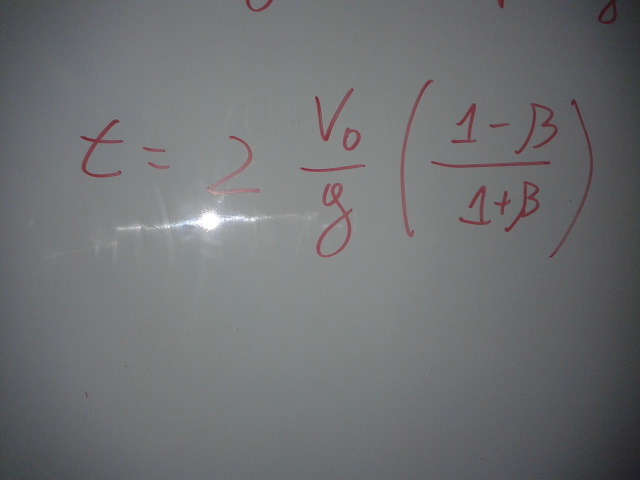 t = 2 V₀/g ( (1-β)/(1+β) )